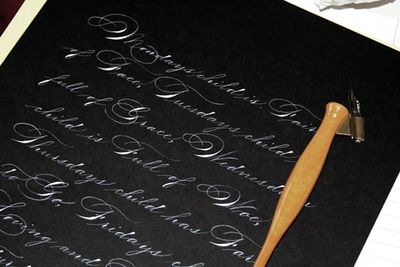 Mondays child is Fair
of Face, Tuesdays child is
full of Grace, Wednesdays
child is Full of Woe,
Thursdays child has Far
to Go, Fridays child
Loving and